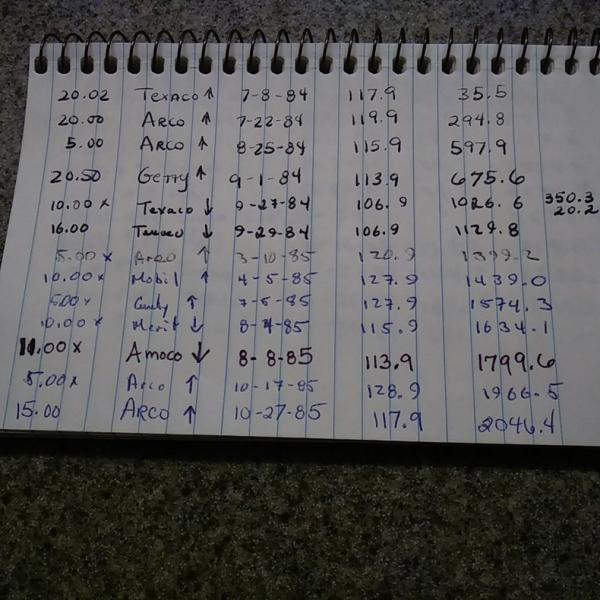 20.02 Texaco ↑ 7-8-84 117.9 35.5
20.00 Arco ↑ 7-22-84 119.9 294.8
5.00 Arco ↑ 8-25-84 115.9 597.9
20.50 Getty ↑ 9-1-84 113.9 675.6
10.00 x Texaco ↓ 9-27-84 106.9 1026.6 350.3
16.00 Texaco ↓ 9-29-84 106.9 1129.8 20.2
5.00 x Arco ↑ 3-10-85 120.9 1399.2
10.00 x Mobil ↑ 4-5-85 127.9 1439.0
5.00 x Getty ↑ 7-5-85 127.9 1574.3
10.00 x Merit ↓ 8-4-85 115.9 1634.1
11.00 x Amoco ↓ 8-8-85 113.9 1799.6
5.00 x Arco ↑ 10-17-85 128.9 1966.5
15.00 ARCO ↑ 10-27-85 117.9 2046.4